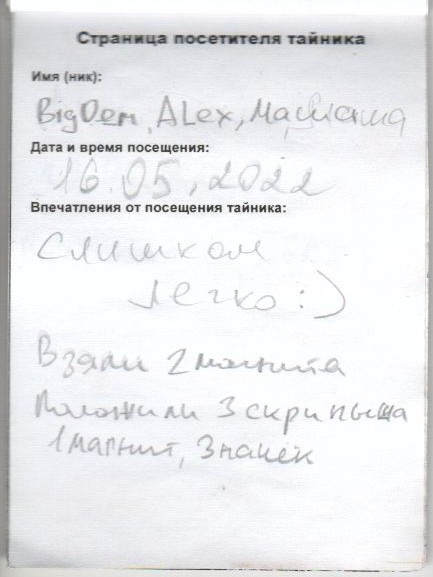 Страница посетителя тайника
Имя (ник):
BigDem, ALex,
Дата и время посещения:
16.05.2022
Впечатления от посещения тайника:
Слишком
легко :)
Взяли 2 магнита
Положили 3 скрипыша
1 магнит, Значек